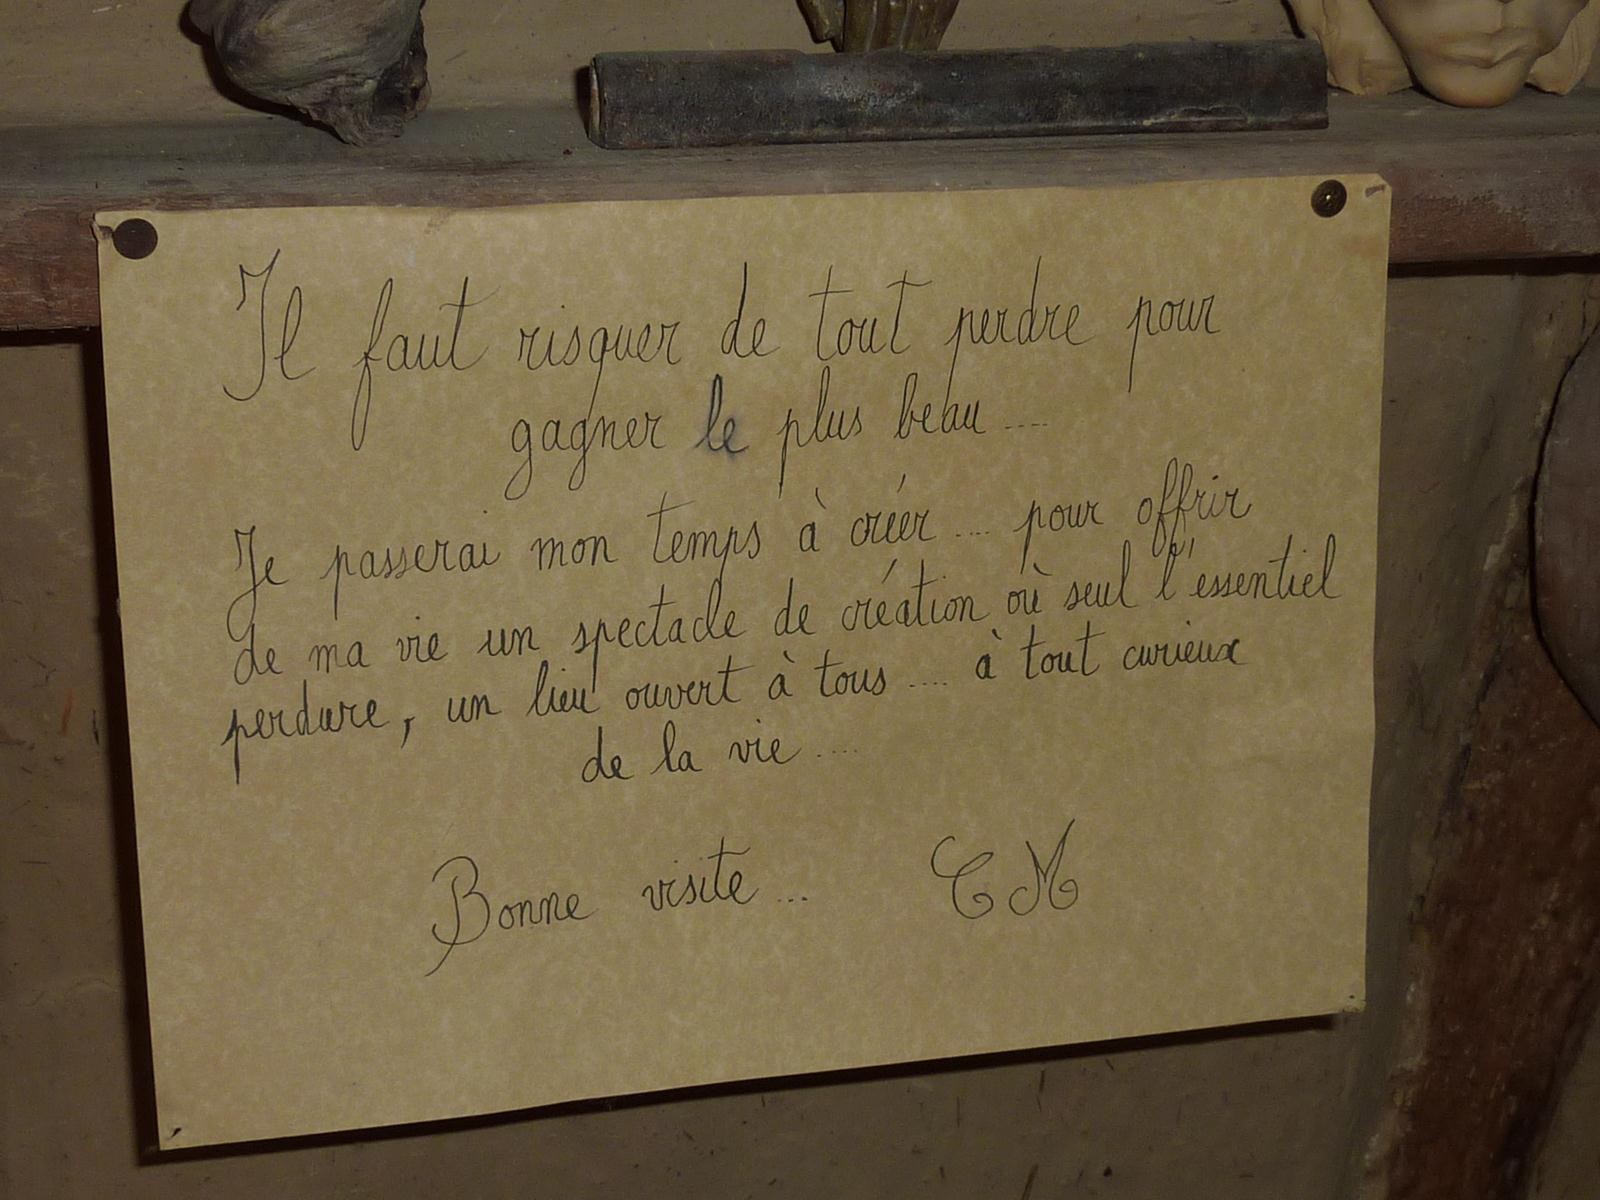 Il faut risquer de tout perdre pour
gagner le plus beau ....
Je passerai mon temps à créer .... pour offrir
de ma vie un spectacle de création où seul l'essentiel
perdure, un lieu ouvert à tous .... à tout curieux
de la vie ....
Bonne visite ... CM